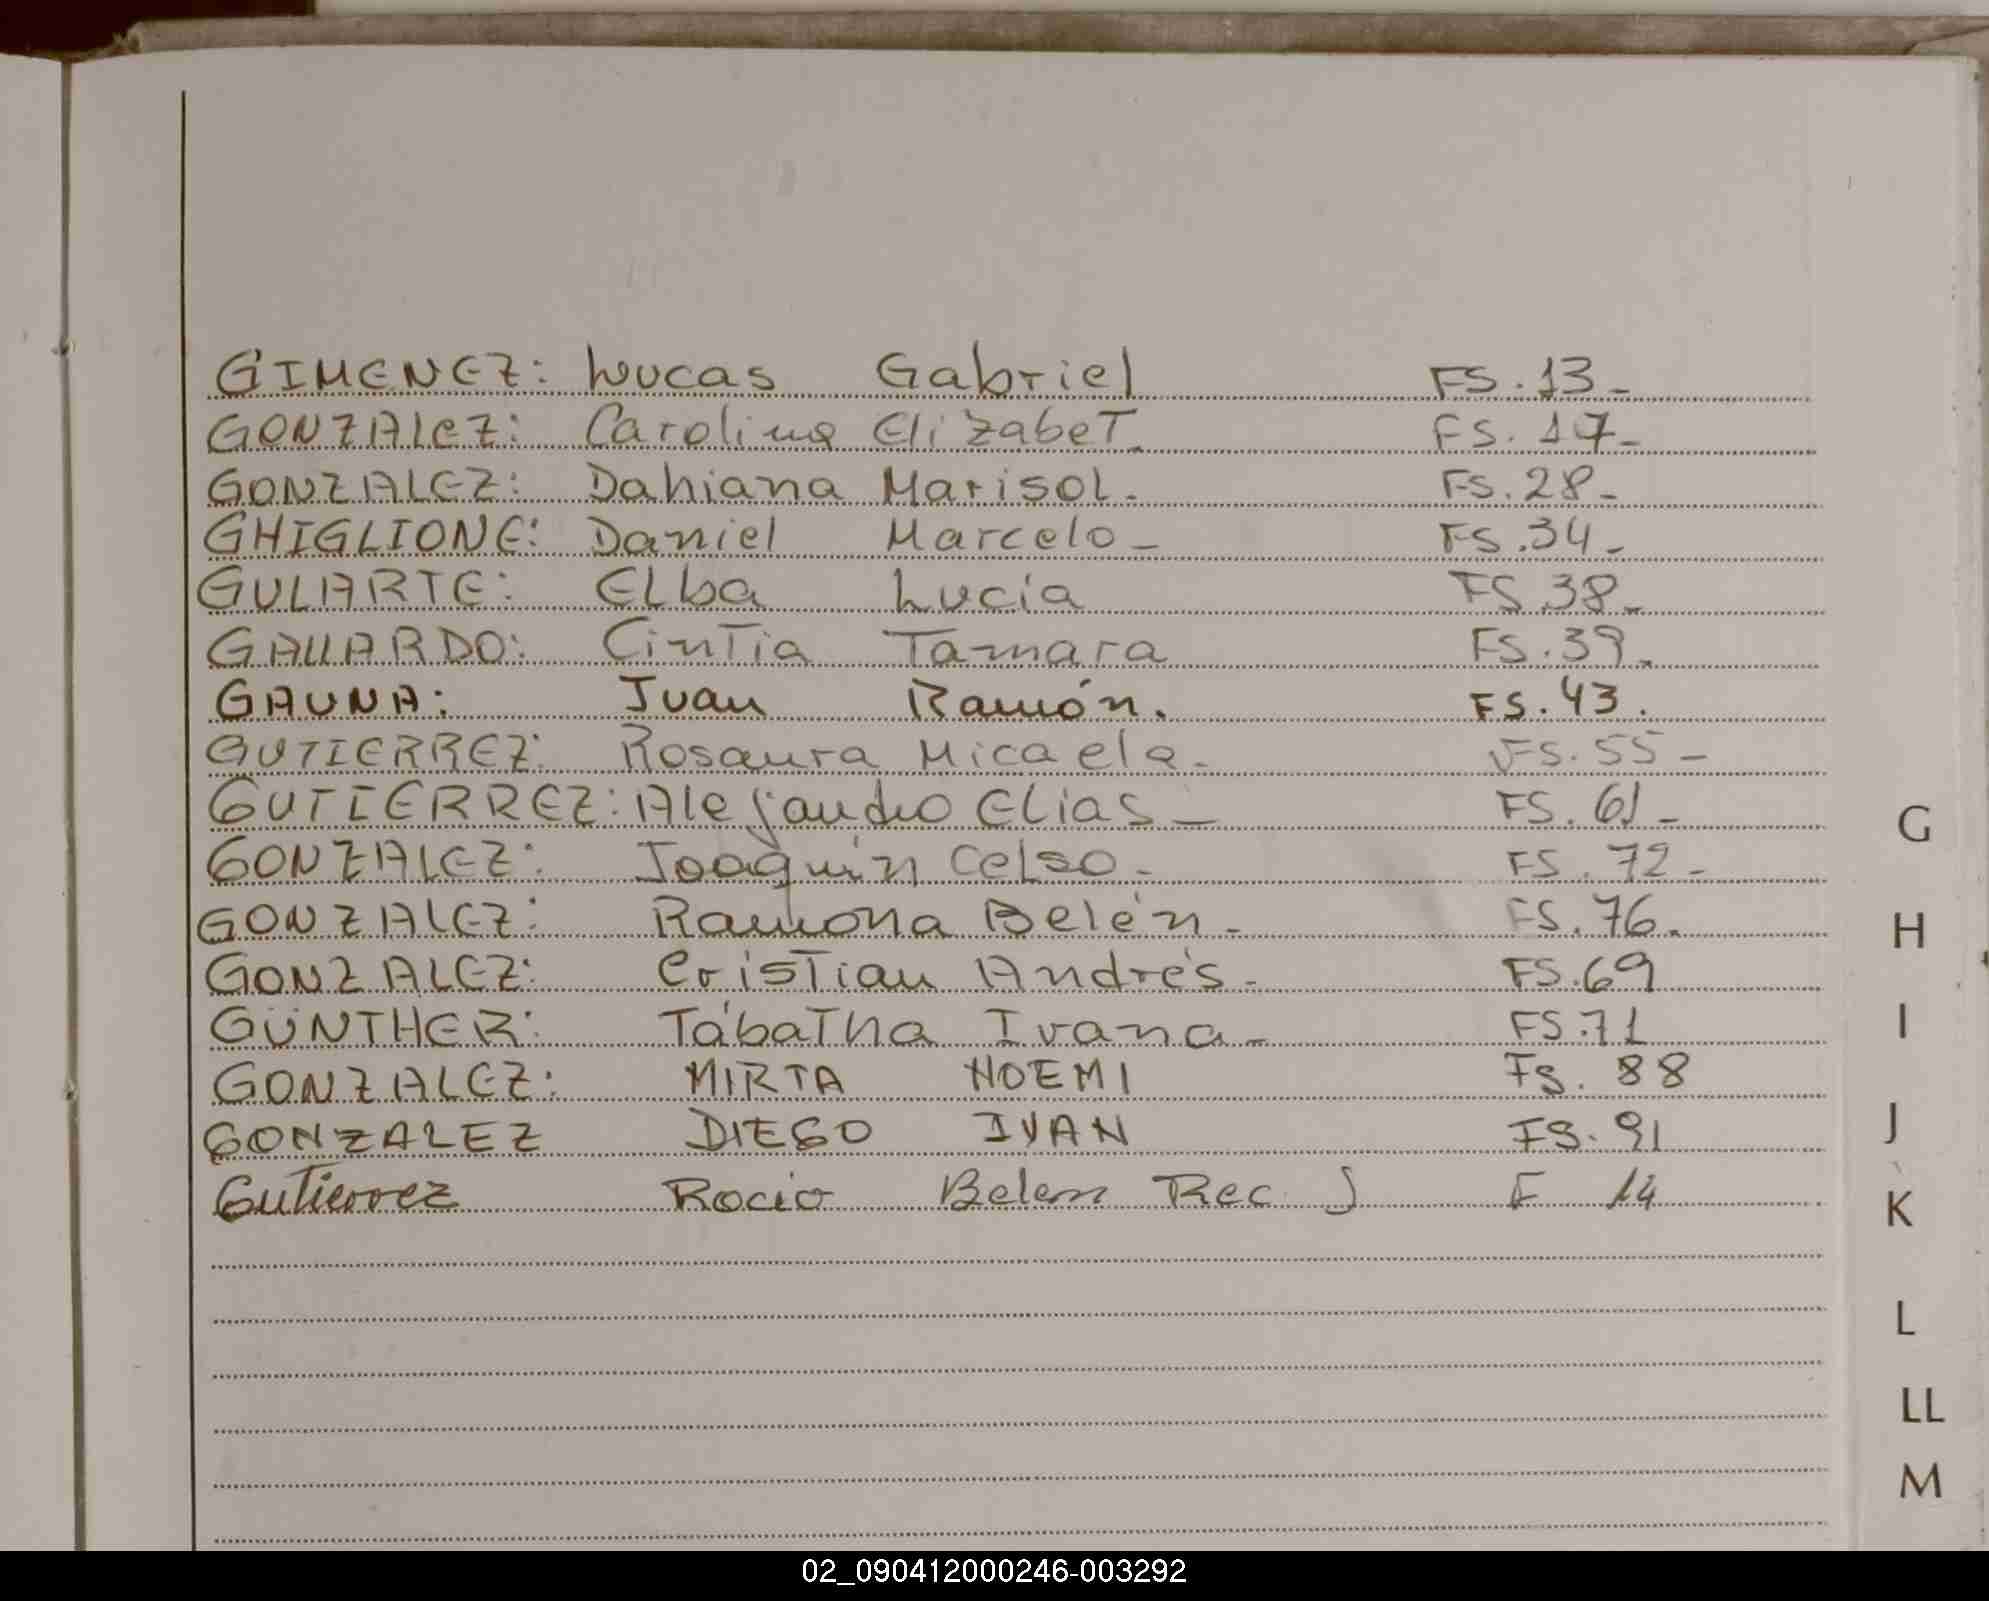 GIMENEZ: Lucas Gabriel FS. 13_
GONZALEZ: Carolina Elizabet_ FS. 17_
GONZALEZ: Dahiana Marisol_ FS. 28_
GHIGLIONE: Daniel Marcelo_ FS. 34_
GULARTE: Elba Lucía FS 38_
GALLARDO: Cintia Tamara FS. 39_
GAUNA: Juan Ramón. FS. 43.
GUTIERREZ: Rosaura Micaela_ FS. 55_
GUTIERREZ: Alejandro Elias_ FS. 61_
GONZALEZ: Joaquín Celso_ FS. 72_
GONZALEZ: Ramona Belén_ FS. 76_
GONZALEZ: Cristian Andrés_ FS. 69
GÜNTHER: Tábatha Ivana_ FS. 71
GONZALEZ: MIRTA NOEMI FS. 88
GONZALEZ DIEGO IVAN FS. 91
Gutierrez Rocio Belem Rec J F 14
G
H
I
J
K
L
LL
M
02_090412000246-003292